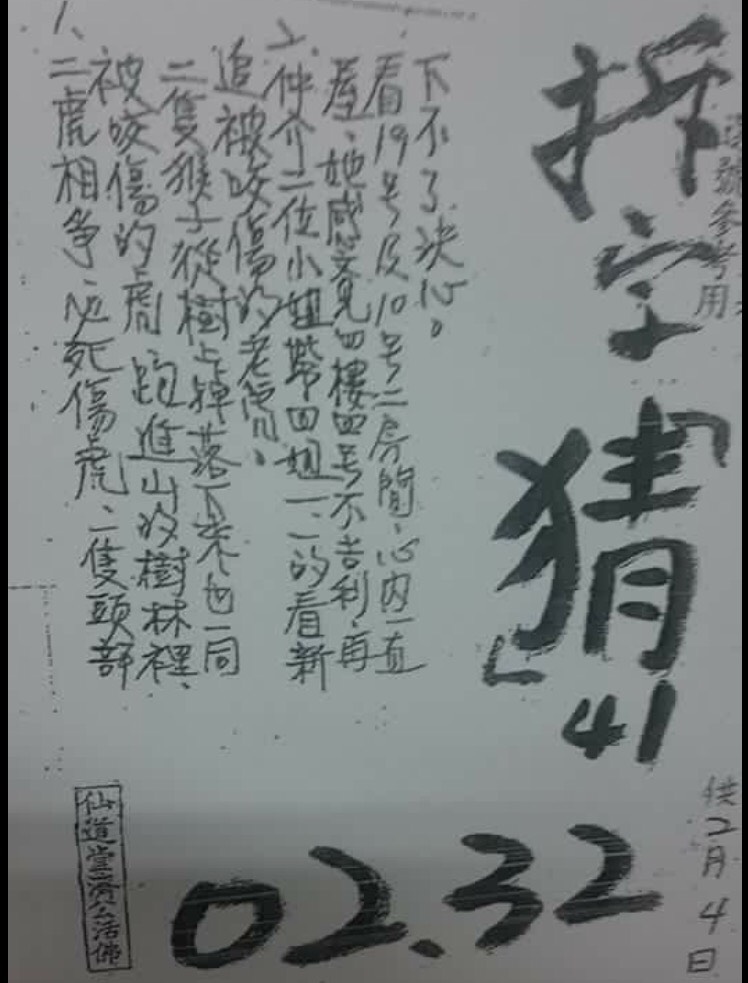 號參考用
供2月4日
拆字「猜」41
1、二虎相爭必死傷虎、二隻頭部
被咬傷的虎跑進山的樹林裡、
二隻猴子從樹上掉落下來也一同
追被咬傷的老虎。
2、仲介二位小姐帶四姐一、一的看新
產、她感覺見四樓四号不吉利、再
看19号及10号二房間、心內一直
下不了決心。
仙道堂濟公活佛
02.32